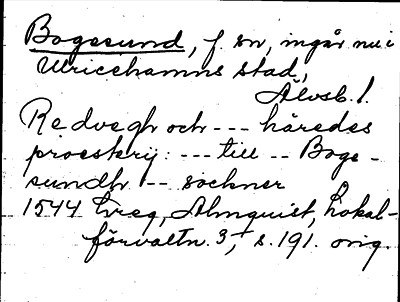 Bogesund, f. sn, ingår nu i
Ulricehamns stad,
Älvsb. l.
Redvegh och --- häredes
proesterij: --- till -- Boge-
sundh -- sockner
1544 Greg, Almquist, Lokal-
förvaltn. 3, s. 191. orig.